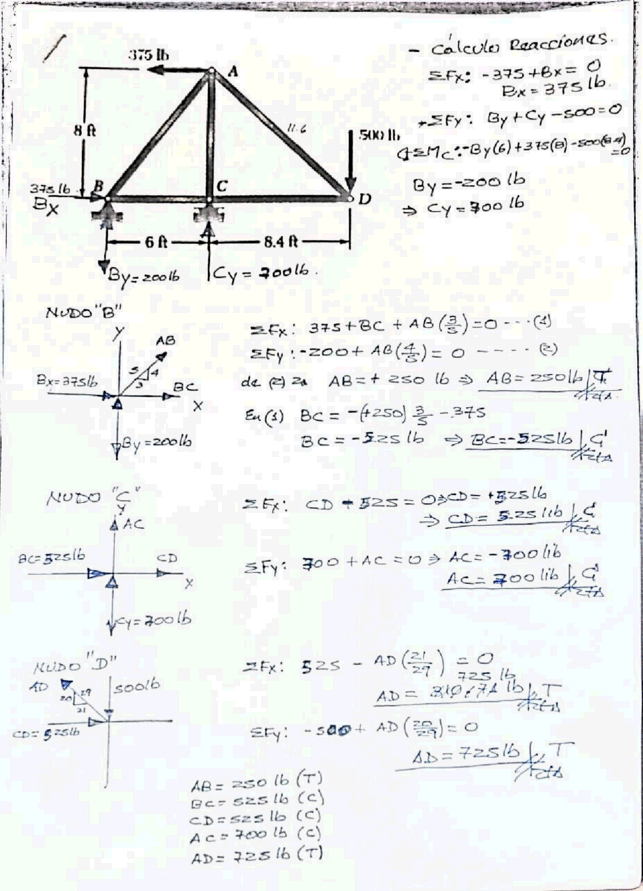 1
375 lb
A
8 ft
11.6
500 lb
375 lb
Bx
B
C
D
6 ft
8.4 ft
By=200lb
Cy = 700lb.
- Cálculo Reacciones.
ΣFx: -375+Bx = 0
Bx = 375 lb.
+ΣFy: By + Cy - 500 = 0
ΣMc: -By(6) + 375(8) - 500(8.4) = 0
By = -200 lb
⇒ Cy = 700 lb
NUDO "B"
Y
AB
5 4
3
Bx=375lb
BC
X
By=200lb
ΣFx: 375 + BC + AB(3/5) = 0 ---- (1)
ΣFy: -200 + AB(4/5) = 0 ----- (2)
de (2) AB = + 250 lb ⇒ AB = 250 lb T
En (1) BC = -(+250) 3/5 - 375
BC = -525 lb ⇒ BC = -525 lb C
NUDO "C"
Y
AC
BC=525lb
CD
X
Cy=700lb
ΣFx: CD + 525 = 0 ⇒ CD = +525 lb
⇒ CD = 525 lb C
ΣFy: 700 + AC = 0 ⇒ AC = -700 lib
AC = 700 lib C
NUDO "D"
AD
500lb
20 29
21
CD=525lb
ΣFx: 525 - AD(21/29) = 0
725 lb
AD = lb T
ΣFy: -500 + AD(20/29) = 0
AD = 725 lb T
AB = 250 lb (T)
BC = 525 lb (C)
CD = 525 lb (C)
AC = 700 lb (C)
AD = 725 lb (T)